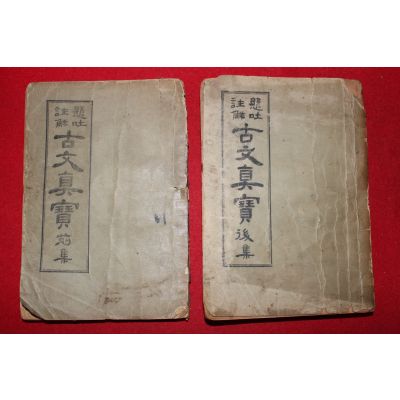 懸吐
註解
古文真寶
前集
懸吐
註解
古文真寶
後集